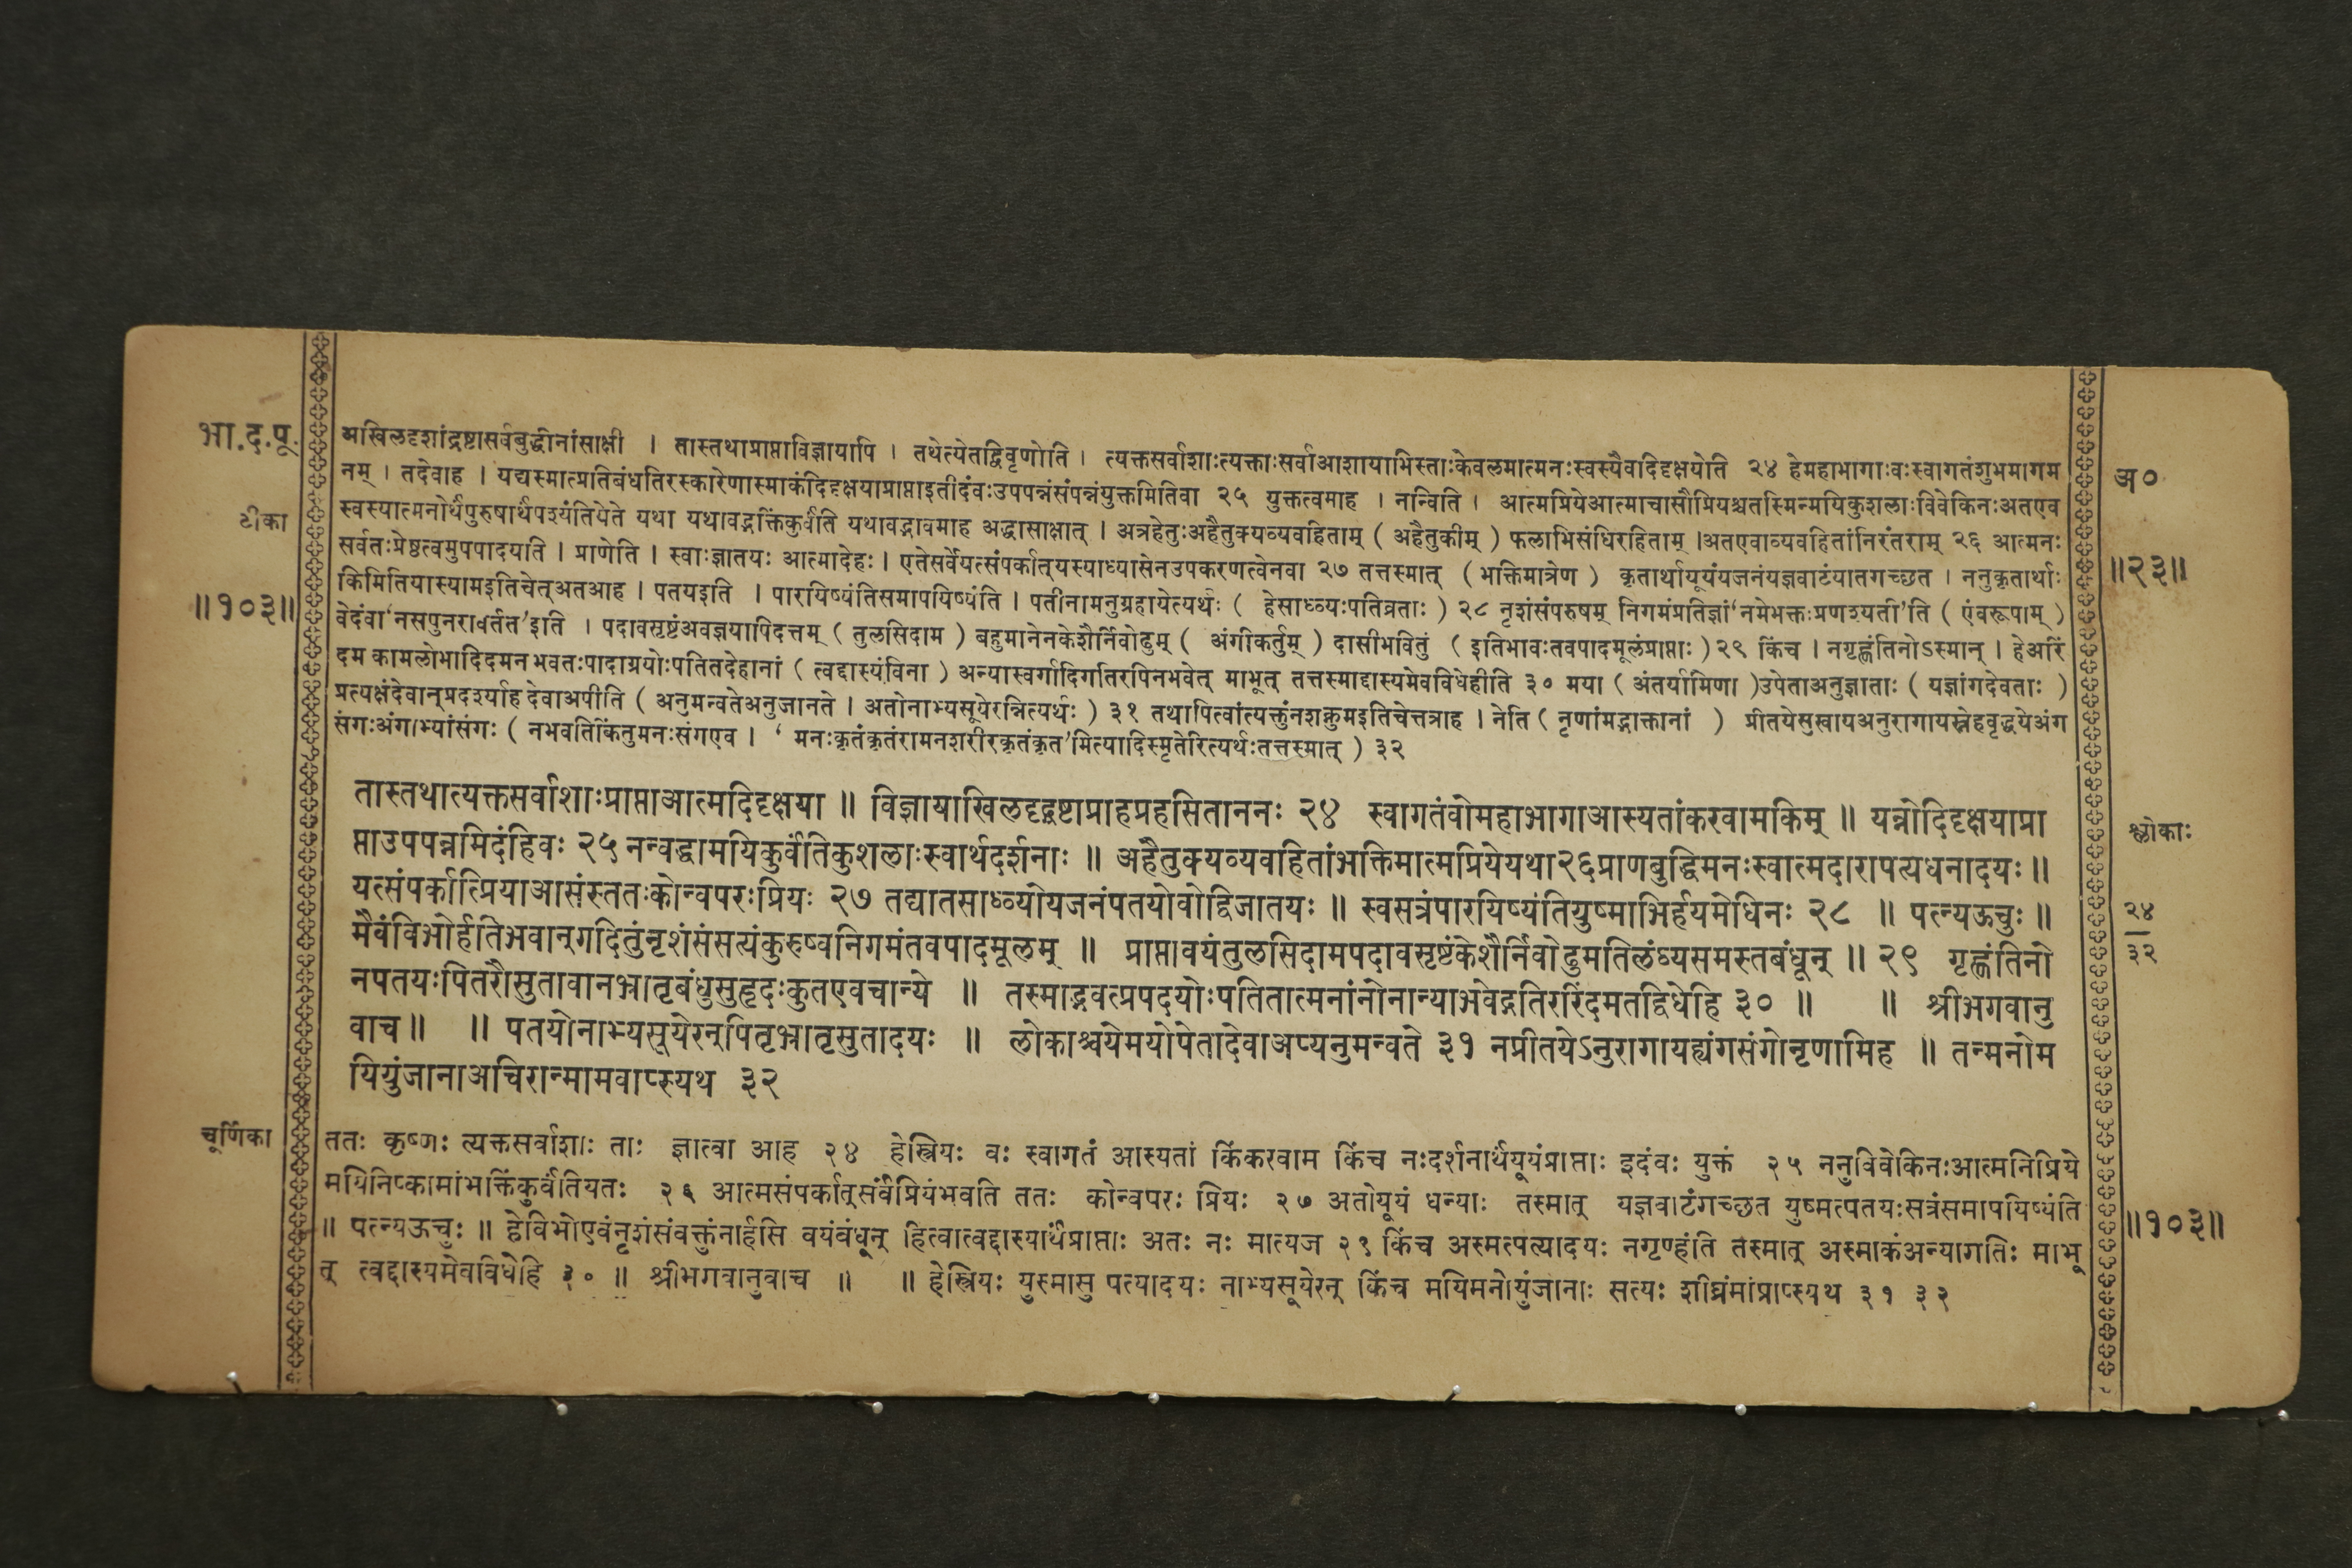 भा.द.पू.
टीका
॥१०३॥
अखिलदृशांद्रष्टासर्वबुद्धीनांसाक्षी । तास्तथाप्राप्ताविज्ञायापि । तथेत्येतद्विवृणोति । त्यक्तसर्वाशाःत्यक्ताःसर्वाआशायाभिस्ताःकेवलमात्मनःस्वस्यैवादिदृक्षयोति २४ हेमहाभागाःवःस्वागतंशुभमागम
नम् । तदेवाह । यद्यस्मात्प्रतिबंधतिरस्कारेणास्माकंदिदृक्षयाप्राप्ताइतीदंवःउपपन्नंसंपन्नंयुक्तमितिवा २५ युक्तत्वमाह । नन्विति । आत्मप्रियेआत्माचासौप्रियश्चतस्मिन्मयिकुशलाःविवेकिनःअतएव
स्वस्यात्मनोर्थंपुरुषार्थंपश्यंतियेते यथा यथावद्भक्तिंकुर्वंति यथावद्भावमाह अद्धासाक्षात् । अत्रहेतुःअहैतुक्यव्यवहिताम् ( अहैतुकीम् ) फलाभिसंधिरहिताम् ।अतएवाव्यवहितांनिरंतराम् २६ आत्मनः
सर्वतःप्रेष्ठत्वमुपपादयति । प्राणेति । स्वाःज्ञातयः आत्मादेहः । एतेसर्वेयत्संपर्कात्यस्याध्यासेनउपकरणत्वेनवा २७ तत्तस्मात् (भक्तिमात्रेण ) कृतार्थायूयंयजनंयज्ञवाटंयातगच्छत । ननुकृतार्थाः
किमितियास्यामइतिचेत्अतआह । पतयइति । पारयिष्यंतिसमापयिष्यंति । पतीनामनुग्रहायेत्यर्थः ( हेसाध्व्यःपतिव्रताः ) २८ नृशंसंपरुषम् निगमंप्रतिज्ञां‘नमेभक्तःप्रणश्यती’ति ( एंवरूपाम् )
वेदंवा‘नसपुनरावर्तत’इति । पदावसृष्टंअवज्ञयापिदत्तम् ( तुलसिदाम ) बहुमानेनकेशैर्निवोढुम् ( अंगीकर्तुम् ) दासीभवितुं ( इतिभावःतवपादमूलंप्राप्ताः ) २९ किंच । नगृह्णंतिनोऽस्मान् । हेअरिं
दम कामलोभादिदमन भवतःपादाग्रयोःपतितदेहानां ( त्वद्दास्यंविना ) अन्यास्वर्गादिर्गतिरपिनभवेत् माभूत् तत्तस्माद्दास्यमेवविधेहीति ३० मया ( अंतर्यामिणा )उपेताअनुज्ञाताः ( यज्ञांगदेवताः )
प्रत्यक्षंदेवान्प्रदर्श्याह देवाअपीति ( अनुमन्वतेअनुजानते । अतोनाभ्यसूयेरन्नित्यर्थः ) ३१ तथापित्वांत्यक्तुंनशक्नुमइतिचेत्तत्राह । नेति ( नृणांमद्भाक्तानां ) प्रीतयेसुखायअनुरागायस्नेहवृद्धयेअंग
संगःअंगाभ्यांसंगः ( नभवतिकिंतुमनःसंगएव । ‘ मनःकृतंकृतंरामनशरीरकृतंकृत’मित्यादिस्मृतेरित्यर्थःतत्तस्मात् ) ३२
अ०
॥२३॥
तास्तथात्यक्तसर्वाशाःप्राप्ताआत्मदिदृक्षया ॥ विज्ञायाखिलदृग्द्रष्टाप्राहप्रहसिताननः २४ स्वागतंवोमहाभागाआस्यतांकरवामकिम् ॥ यन्नोदिदृक्षयाप्रा
प्ताउपपन्नमिदंहिवः २५ नन्वद्धामयिकुर्वंतिकुशलाःस्वार्थदर्शनाः ॥ अहैतुक्यव्यवहितांभक्तिमात्मप्रियेयथा२६प्राणबुद्धिमनःस्वात्मदारापत्यधनादयः॥
यत्संपर्कात्प्रियाआसंस्ततःकोन्वपरःप्रियः २७ तद्यातसाध्व्योयजनंपतयोवोद्विजातयः ॥ स्वसत्रंपारयिष्यंतियुष्माभिर्हयमेधिनः २८ ॥ पत्न्यऊचुः ॥
मैवंविभोर्हतिभवान्गदितुंनृशंसंसत्यंकुरुष्वनिगमंतवपादमूलम् ॥ प्राप्तावयंतुलसिदामपदावसृष्टंकेशैर्निवोढुमतिलंघ्यसमस्तबंधून् ॥ २९ गृह्णंतिनो
नपतयःपितरौसुतावानभ्रातृबंधुसुहृदःकुतएवचान्ये ॥ तस्माद्भवत्प्रपदयोःपतितात्मनांनोनान्याभवेद्गतिररिंदमतद्विधेहि ३० ॥ ॥ श्रीभगवानु
वाच ॥ ॥ पतयोनाभ्यसूयेरन्पितृभ्रातृसुतादयः ॥ लोकाश्चयेमयोपेतादेवाअप्यनुमन्वते ३१ नप्रीतयेऽनुरागायह्यंगसंगोनृणामिह ॥ तन्मनोम
यियुंजानाअचिरान्मामवाप्स्यथ ३२
श्लोकाः
२४
३२
चूर्णिका
ततः कृष्णः त्यक्तसर्वाशाः ताः ज्ञात्वा आह २४ हेस्त्रियः वः स्वागतं आस्यतां किंकरवाम किंच नःदर्शनार्थंयूयंप्राप्ताः इदंवः युक्तं २५ ननुविवेकिनःआत्मनिप्रिये
मयिनिष्कामांभक्तिंकुर्वंतियतः २६ आत्मसंपर्कात्सर्वंप्रियंभवति ततः कोन्वपरः प्रियः २७ अतोयूयं धन्याः तस्मात् यज्ञवाटंगच्छत युष्मत्पतयःसत्रंसमापयिष्यंति
॥ पत्न्यऊचुः ॥ हेविभोएवंनृशंसंवक्तुंनार्हसि वयंबंधून् हित्वात्वद्दास्यार्थंप्राप्ताः अतः नः मात्यज २९ किंच अस्मत्पत्यादयः नगृण्हंति तस्मात् अस्माकंअन्यागतिः माभू
त् त्वद्दास्यमेवविधेहि ३० ॥ श्रीभगवानुवाच ॥ ॥ हेस्त्रियः युस्मासु पत्यादयः नाभ्यसूयेरन् किंच मयिमनोयुंजानाः सत्यः शीघ्रंमांप्राप्स्यथ ३१ ३२
॥१०३॥